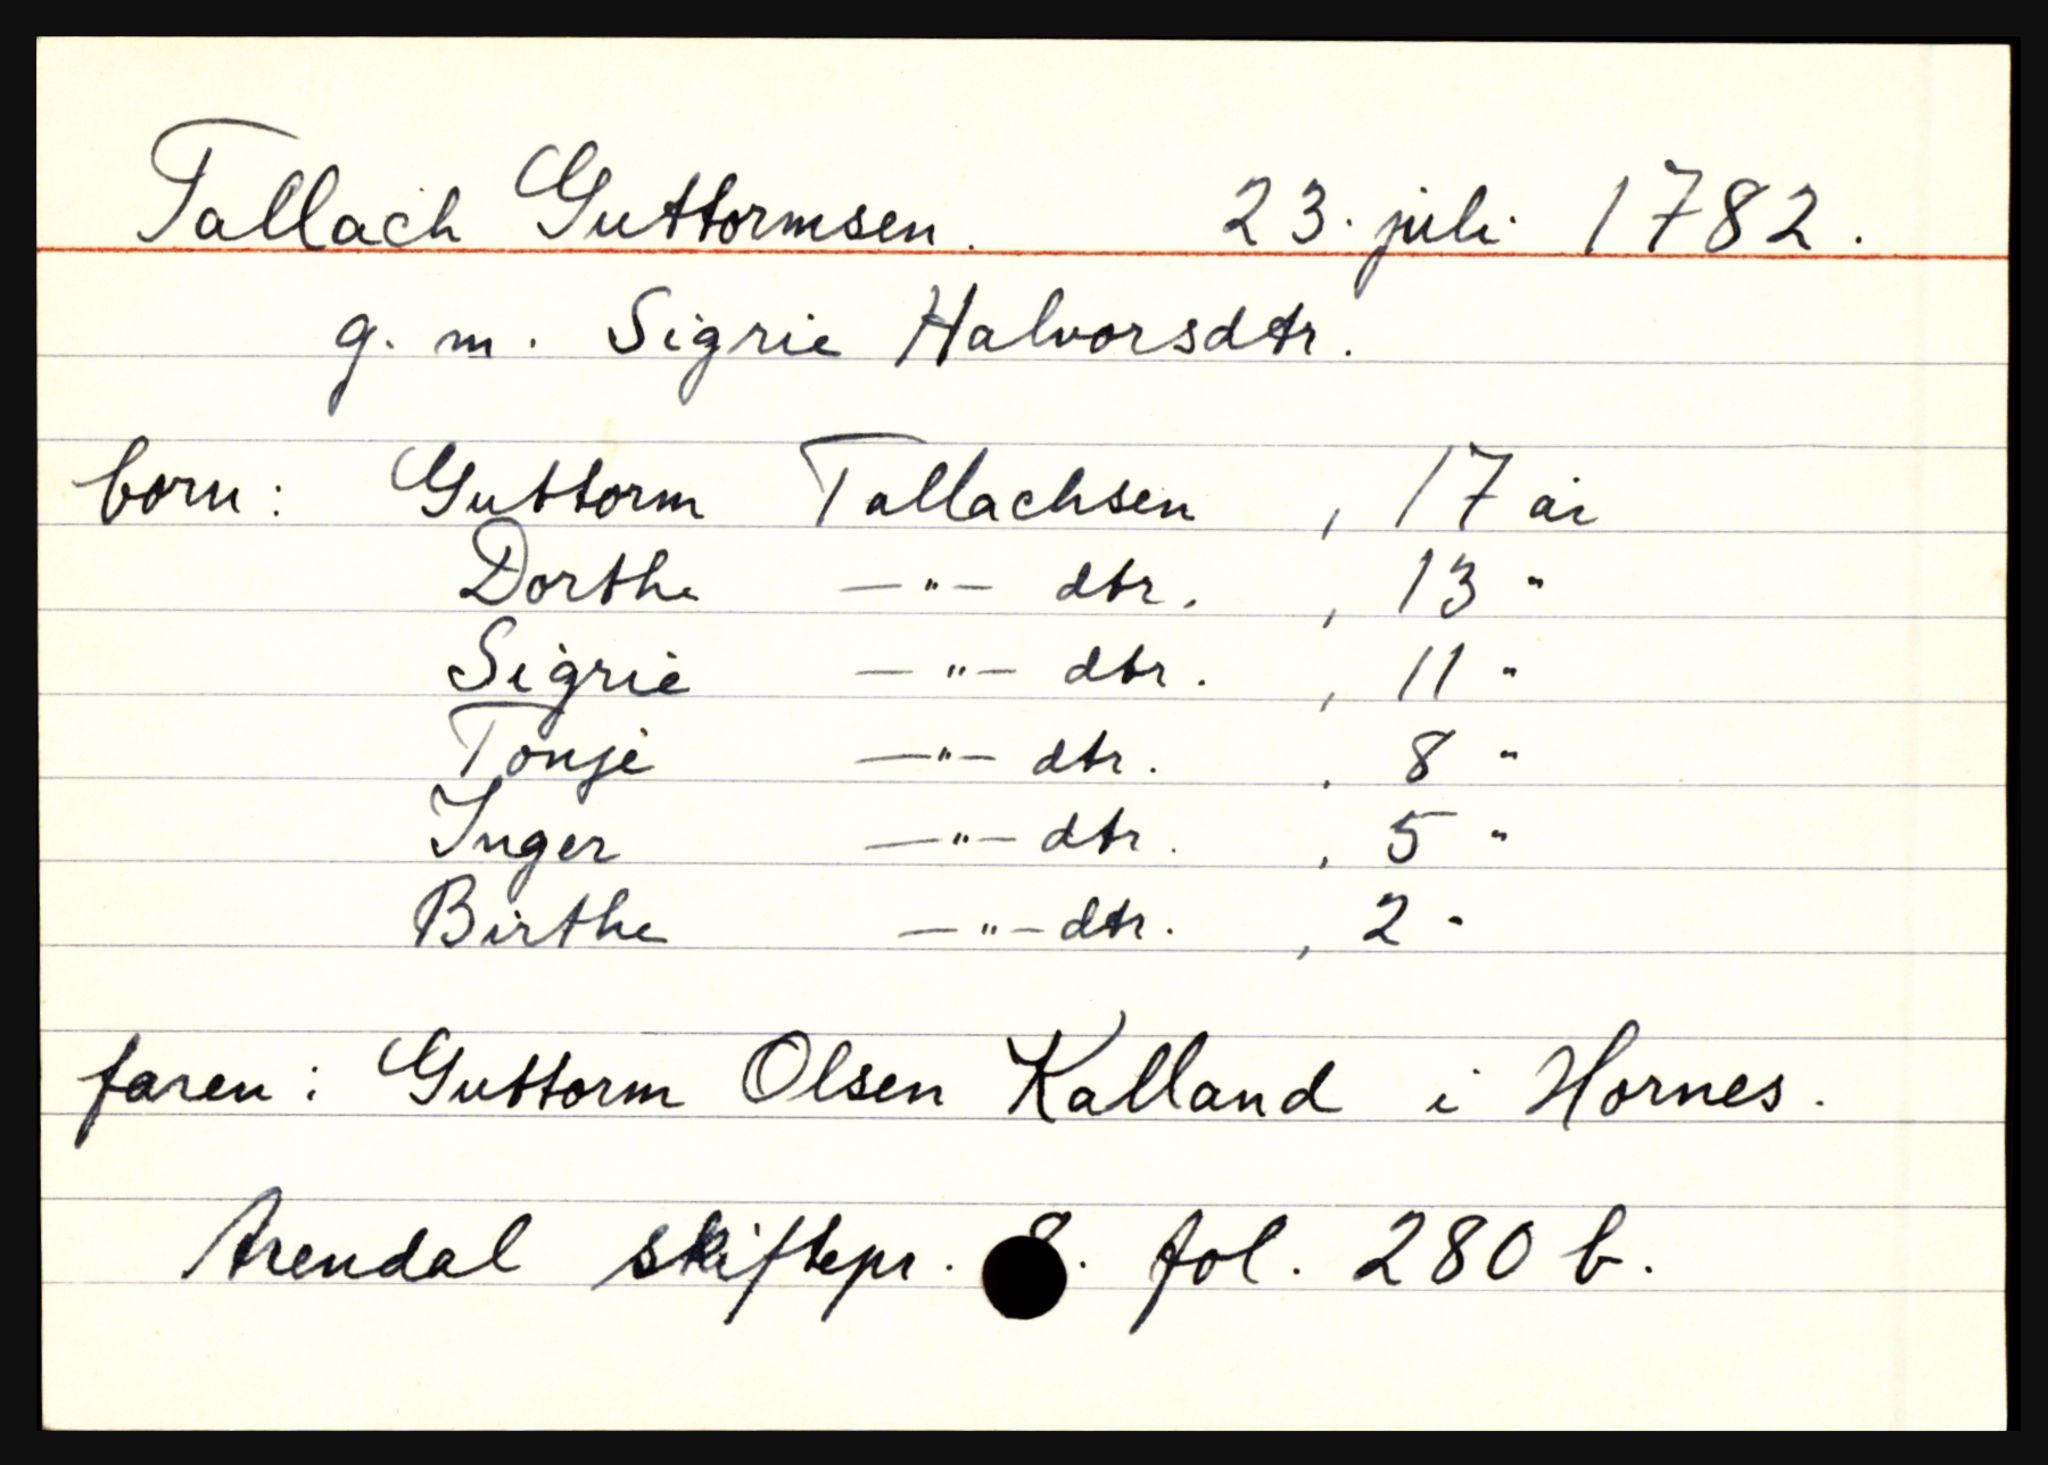 Tallach Guttormsen. 23. juli 1782.
g. m. Sigrie Halvorsdtr.
born: Guttorm Tallachsen, 17 år
Dorthe —"— dtr., 13 "
Sigrie —"— dtr., 11 "
Tonje —"— dtr., 8 "
Inger —"— dtr., 5 "
Birthe —"— dtr., 2 "
faren: Guttorm Olsen Kalland i Hornes.
Arendal skiftepr. 8. fol. 280 b.